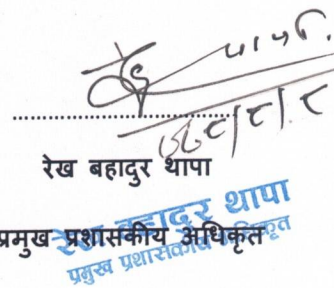 रेख बहादुर थापा
प्रमुख प्रशासकीय अधिकृत
रेख बहादुर थापा
प्रमुख प्रशासकीय अधिकृत